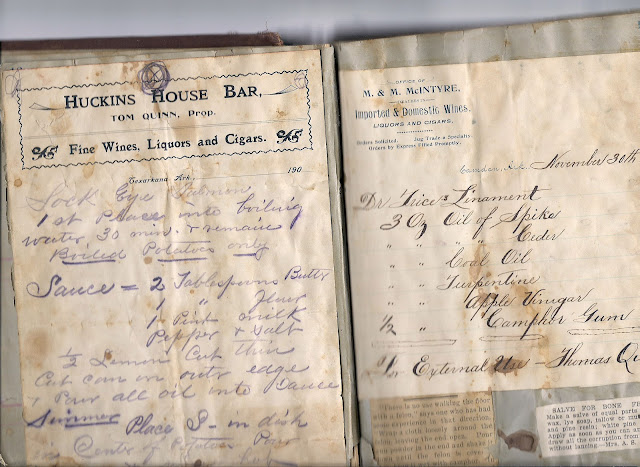 HUCKINS HOUSE BAR,
TOM QUINN, Prop.
Fine Wines, Liquors and Cigars.
Texarkana Ark., 190
Sock Eye Salmon
1st Place into boiling
water 30 min. & remain
Boiled Potatoes only
Sauce = 2 Tablespoons Butter
1 " Flour
1 Pint milk
Pepper & Salt
1/2 Lemon Cut thin
Cut can on outr edge
& Pour all oil into Sauce
Simmer Place S- in dish
Centre of Potatoes Pour
OFFICE OF
M. & M. McINTYRE,
Imported & Domestic Wines,
LIQUORS AND CIGARS,
Orders Solicited. Jug Trade a Specialty.
Orders by Express Filled Promptly.
Camden, November 30th
Dr Trices Linament
3 Oz Oil of Spike
" " " " Ceder
" " Coal Oil
" " Turpentine
" " Apple Vinegar
1/2 " Camphor Gum
For External Use - Thomas Qu
SALVE FOR BONE
Make a salve of equal parts
wax, lye soap, tallow or mu
and pine resin; white pine
Apply as soon as you can an
draw all the corruption from
without lancing.—Mrs. A. S.